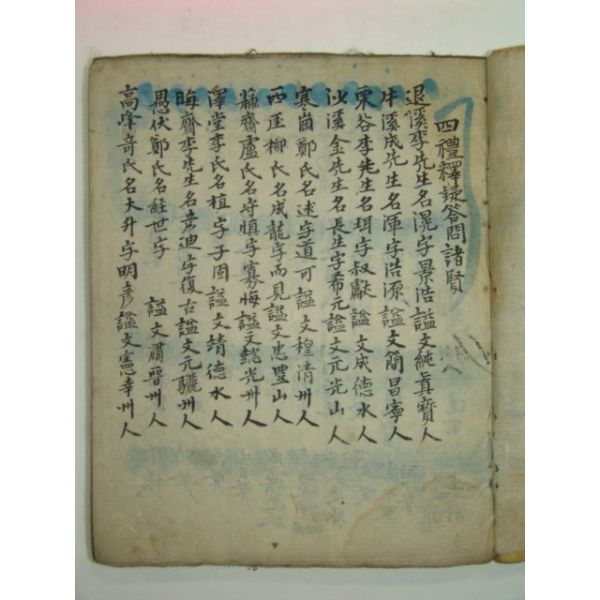 四禮釋疑答問諸賢
退溪李先生名滉字景浩謚文純眞寶人
牛溪成先生名渾字浩源謚文簡昌寧人
栗谷李先生名珥字叔獻謚文成德水人
沙溪金先生名長生字希元謚文元光山人
寒岡鄭氏名逑字道可謚文穆清州人
西厓柳氏名成龍字而見謚文忠豊山人
蘇齋盧氏名守愼字寡悔謚文懿光州人
澤堂李氏名植字子固謚文靖德水人
晦齋李先生名彦迪字復古謚文元驪州人
愚伏鄭氏名経世字 謚文肅晉州人
高峰奇氏名大升字明彦謚文憲幸州人